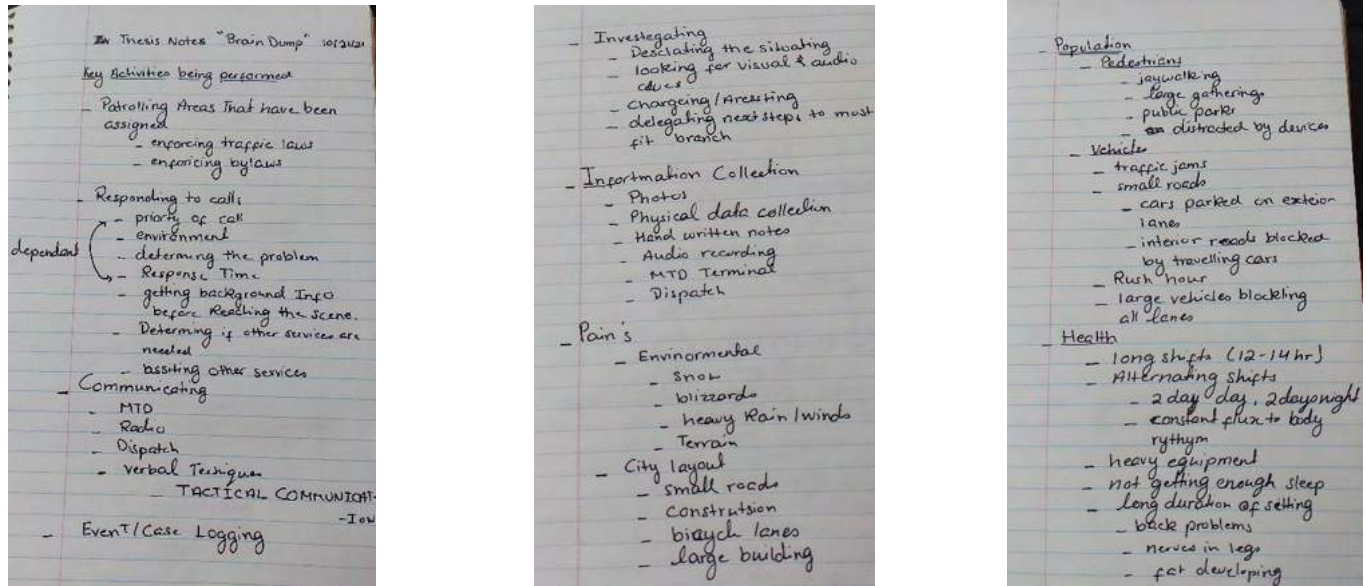 Thesis Notes "Brain Dump" 10/21/21
Key Activities being performed
- Patrolling Areas That have been
assigned
- enforcing traffic laws
- enforicing bylaws
- Responding to calls
- priorty of call
- environment
dependant
- determining the problem
- Response Time
- getting background Info
before Reaching the scene.
- Determing if other services are
needed
- assiting other services
- Communicating
- MTD
- Radio
- Dispatch
- verbal Techniques
- TACTICAL COMMUNICAT-
-ION
- EvenT/Case Logging
- Investegating
- Desclating the situating
- looking for visual & audio
clues
- chargeing/Aressting
- delegating next steps to most
fit branch
- Infortmation Collection
- Photos
- Physical data collection
- Hand written notes
- Audio recording
- MTD Terminal
- Dispatch
- Pain's
- Envinormental
- Snow
- blizzards
- heavy Rain/winds
- Terrain
- City layout
- small roads
- construtsion
- bicych lanes
- large building
- Population
- Pedestrians
- jaywalking
- large gatherings
- public parks
- distracted by devices
- Vehicles
- traffic jams
- small roads
- cars parked on exterior
lanes
- interior roads blocked
by travelling cars
- Rush hour
- large vehicles blockling
all lanes
- Health
- long shifts (12-14hr)
- Alternating shifts
- 2 day day, 2 days night
- constant flux to body
rythym
- heavy equipment
- not getting enough sleep
- long duration of sitting
- back problems
- nerves in legs
- fat developing